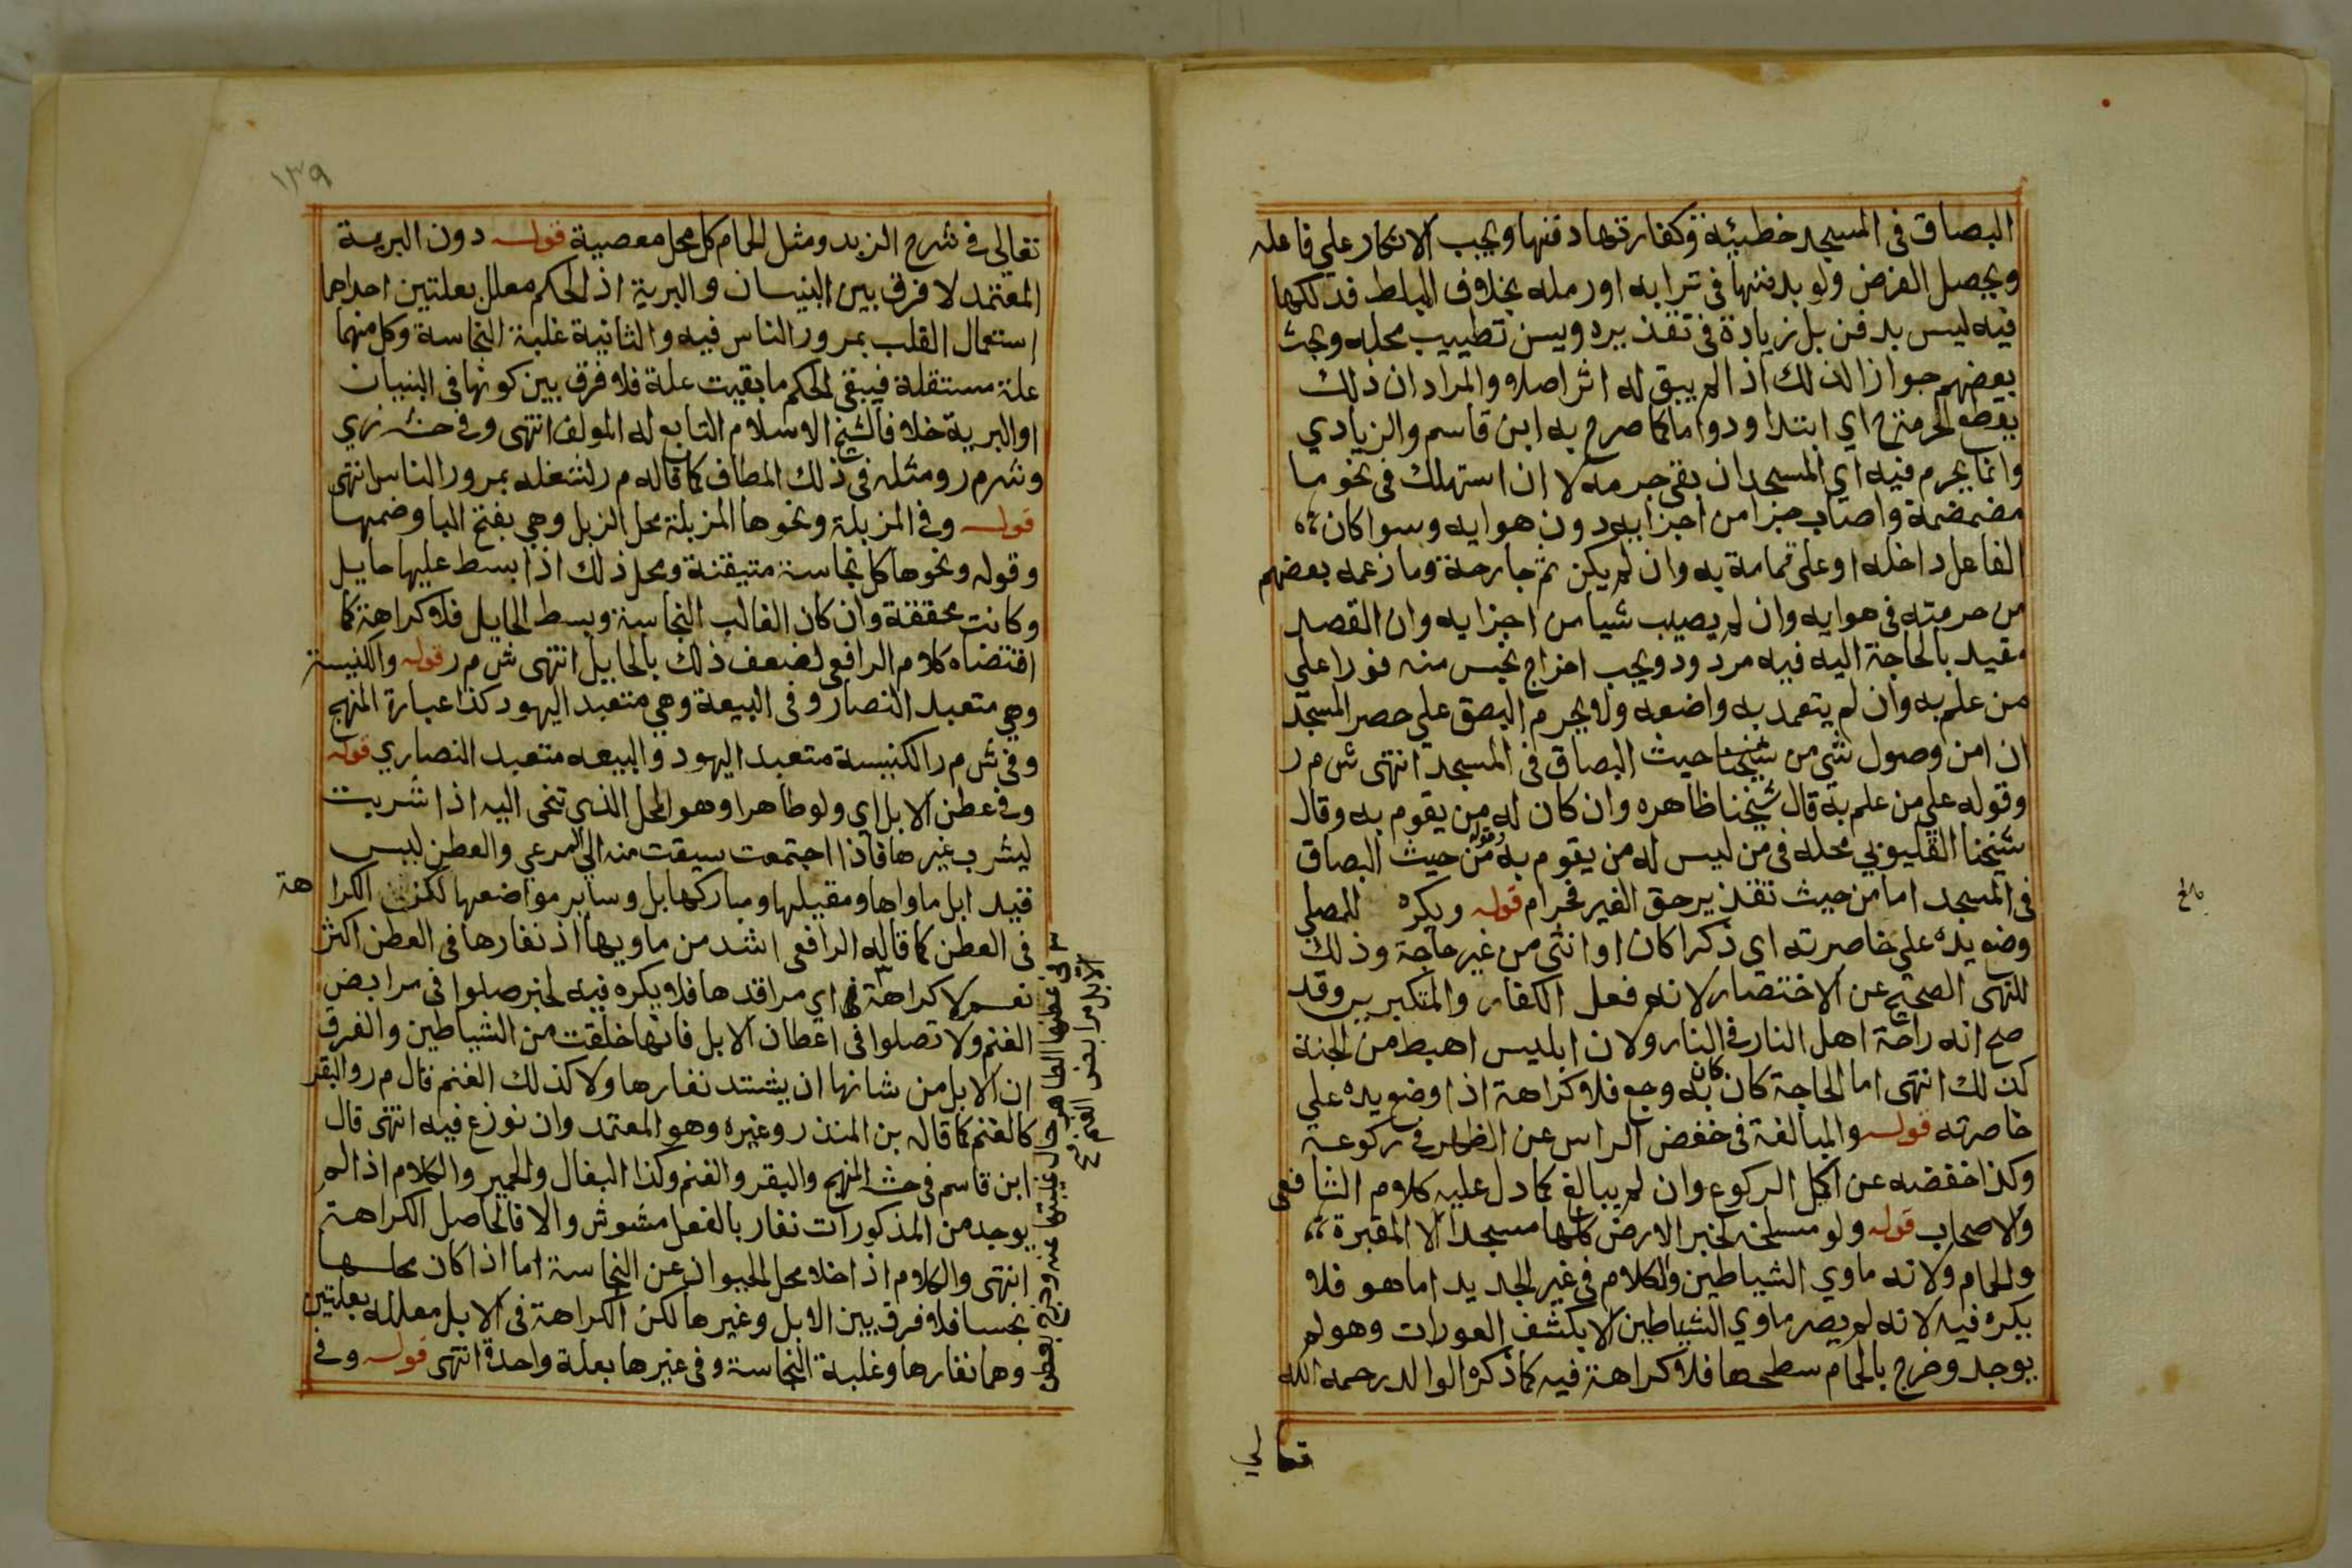 البصاق فى المسجد خطيئة وكفارتها دفنها ويجب الانكار علي فاعله
ويحصل الغرض ولو بدفنها فى ترابه او رمله بخلاف المبلط فدلكها
فيه ليس بدفن بل زيادة فى تقذيره ويسن تطييب محله وبحث
بعضهم جواز الدلك اذا لم يبق له اثر اصلا والمراد ان ذلك
يقطع الحرمة اي ابتدا ودواما كما صرح به ابن قاسم والزيادي
وانما يحرم فيه اي المسجد ان بقى جرمه لا ان استهلك فى نحو ما
مضمضمة واصاب جزا من اجزايه دون هوايه وسوا كان
الفاعل داخله او على قمامة به وان لم يكن ثم جارحة وما زعمه بعضهم
من حرمته فى هوايه وان لم يصيب شيا من اجزايه وان القصد
مقيد بالحاجة اليه فيه مردود ويجب اخراج نجس منه فورا على
من علم به وان لم يتعمد به واضعه ولا يحرم البصق علي حصر المسجد
ان امن وصول شي من حيث البصاق فى المسجد انتهى ش م ر
وقوله علي من علم به قال شيخنا ظاهره وان كان له من يقوم به وقال
شيخنا القليوبي محله فى من ليس له من يقوم به وقوله من حيث البصاق
فى المسجد اما من حيث تقذير حق الغير فحرام قوله ويكره للمصلي
وضع يده علي خاصرته اي ذكرا كان او انثى من غير حاجة وذلك
للنهى الصحيح عن الاختصار لانه فعل الكفار والمتكبرين وقد
صح انه راحة اهل النار فى النار ولان ابليس اهبط من الجنة
كذلك انتهى اما الحاجة كان كان به وجع فلا كراهة اذا وضع يده علي
خاصرته قوله والمبالغة فى خفض الراس عن الظهر فى ركوعه
وكذا خفضه عن اكمل الركوع وان لم يبالغ كما دل عليه كلام الشافعى
والاصحاب قوله ولو مسلخه لخبر الارض كلها مسجد الا المقبرة
والحمام ولانه ماوي الشياطين والكلام فى غير الجديد اما هو فلا
يكره فيه لانه لم يصر ماوي الشياطين الا بكشف العورات وهو لم
يوجد وخرج بالحمام سطحها فلا كراهة فيه كما ذكره الوالد رحمه الله
تعالي
١٣٩
تعالى فى شرح الزبد ومثل الحمام كل محل معصية قوله دون البرية
المعتمد لا فرق بين البنيان والبرية اذ الحكم معلل بعلتين احداهما
اشتغال القلب بمرور الناس فيه والثانية غلبة النجاسة وكل منهما
علة مستقلة فيبقى الحكم ما بقيت علة فلا فرق بين كونها فى البنيان
او البرية خلافا لشيخ الاسلام التابع له المولف انتهى وفى حش زي
وش م ر ومثله فى ذلك المطاف كما قاله م ر لشغله بمرور الناس انتهى
قوله وفى المزبلة ونحوها المزبلة محل الزبل وهي بفتح البا وضمها
وقوله ونحوها كل نجاسة متيقنة ومحل ذلك اذا بسط عليها حايل
وكانت محققة وان كان الغالب النجاسة وبسط الحايل فلا كراهة كما
اقتضاه كلام الرافعى لضعف ذلك بالحايل انتهى ش م ر قوله والكنيسة
وهي متعبد النصار وفى البيعة وهي متعبد اليهود كذا عبارة المنهج
وفى ش م ر الكنيسة متعبد اليهود والبيعه متعبد النصاري قوله
وفى عطن الابل اى ولو طاهرا وهو المحل الذي تنحى اليه اذا شربت
ليشرب غيرها فاذا اجتمعت سيقت منه الي المرعي والعطن ليس
قيد ابل ماواها ومقيلها ومباركها بل وساير مواضعها لكن الكراهة
فى العطن كما قاله الرافعى اشد من ماويها اذ نفارها فى العطن اكثر
نعم لا كراهة اي مراقدها فلا يكره فيه لخبر صلوا فى مرابض
الغنم ولا تصلوا فى اعطان الابل فانها خلقت من الشياطين والفرق
ان الابل من شانها ان يشتد نفارها ولا كذلك الغنم قال م ر والبقر
كالغنم كما قاله بن المنذر وغيره وهو المعتمد وان نوزع فيه انتهى قال
ابن قاسم فى حش المنهج والبقر والغنم وكذا البغال والحمير والكلام اذا لم
يوجد من المذكورات نفار بالفعل مشوش والا فالحاصل الكراهة
انتهى والكلام اذا خلا محل الحيوان عن النجاسة اما اذا كان محلها
نجسا فلا فرق بين الابل وغيرها لكن الكراهة فى الابل معللة بعلتين
وهما نفارها وغلبة النجاسة وفى غيرها بعلة واحدة انتهى قوله وفى
فى عطنها الطاهر حال غيبتها عنه وخرج بعطن
الابل مرابض الغنم